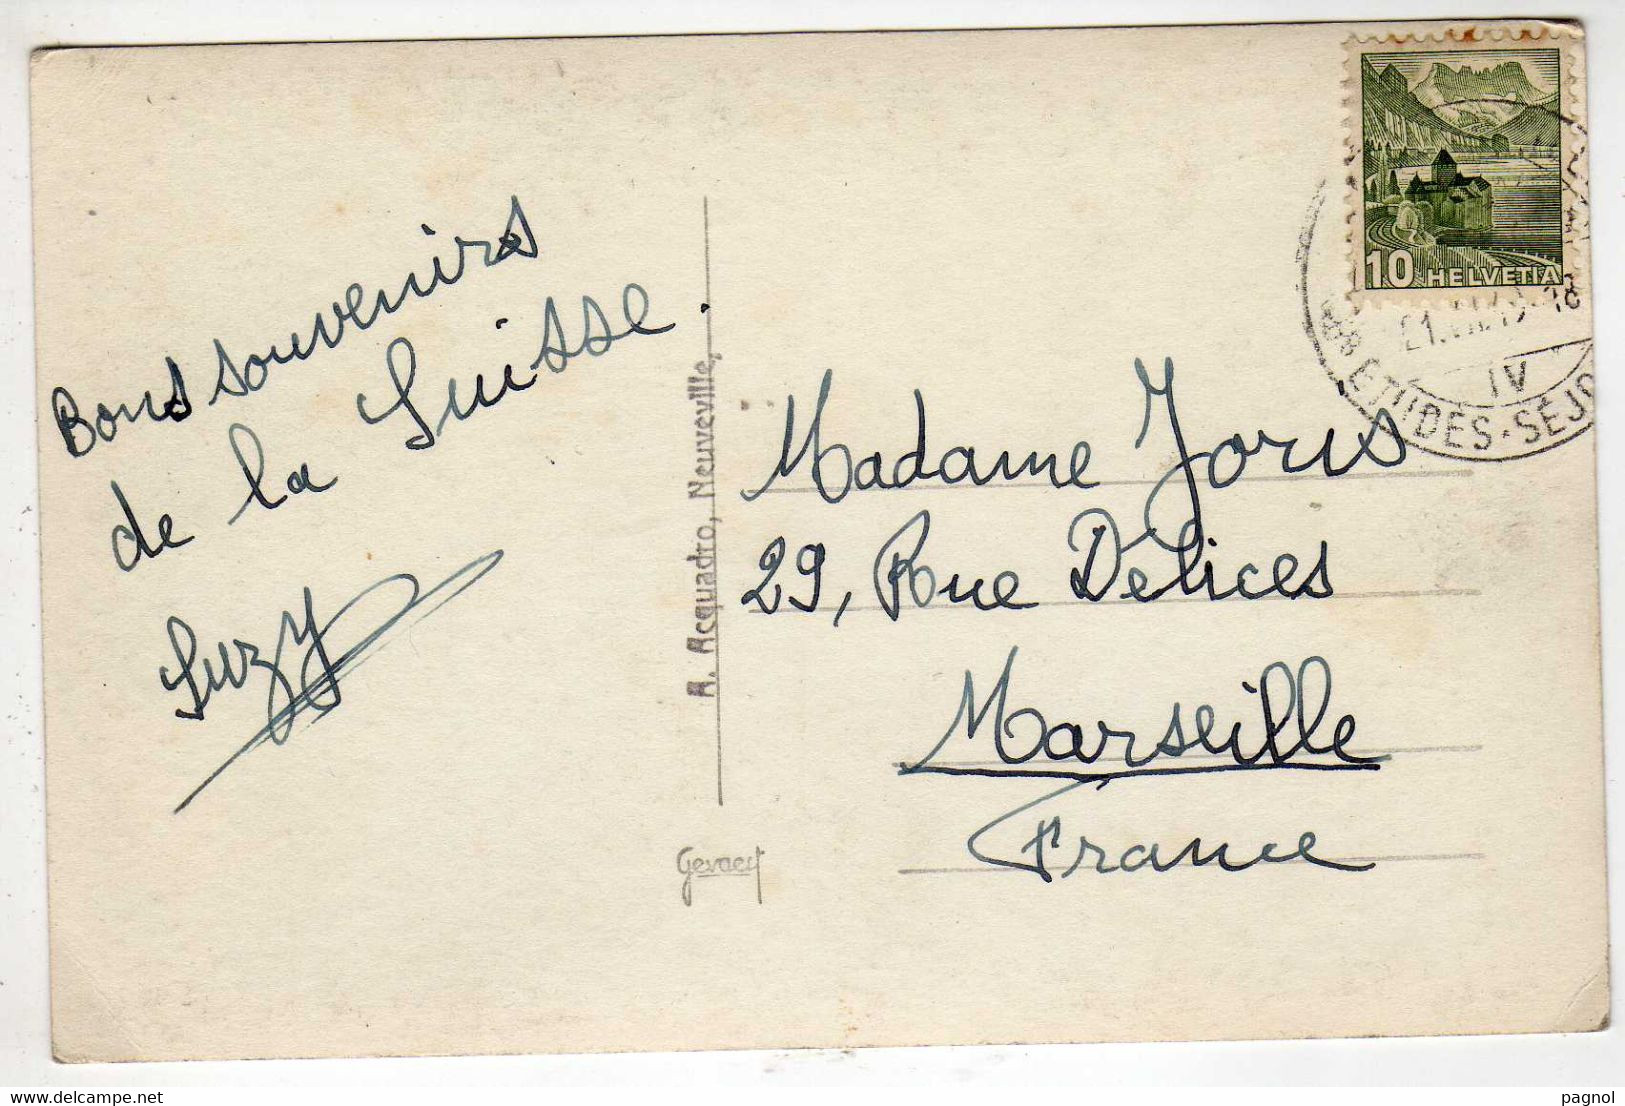 Bons souvenirs
de la Suisse.
Suzy
A. Acquadro, Neuveville,
Gevaert
10 HELVETIA
IV
ETUDES-SÉJO
Madame Joris
29, Rue Délices
Marseille
France
delcampe.net
pagnol